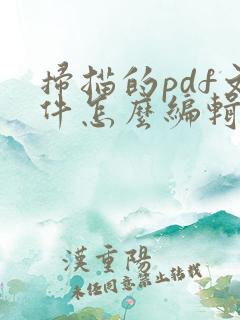 掃描的pdf文
件怎麼編輯
漢重陽
未經同意禁止轉載